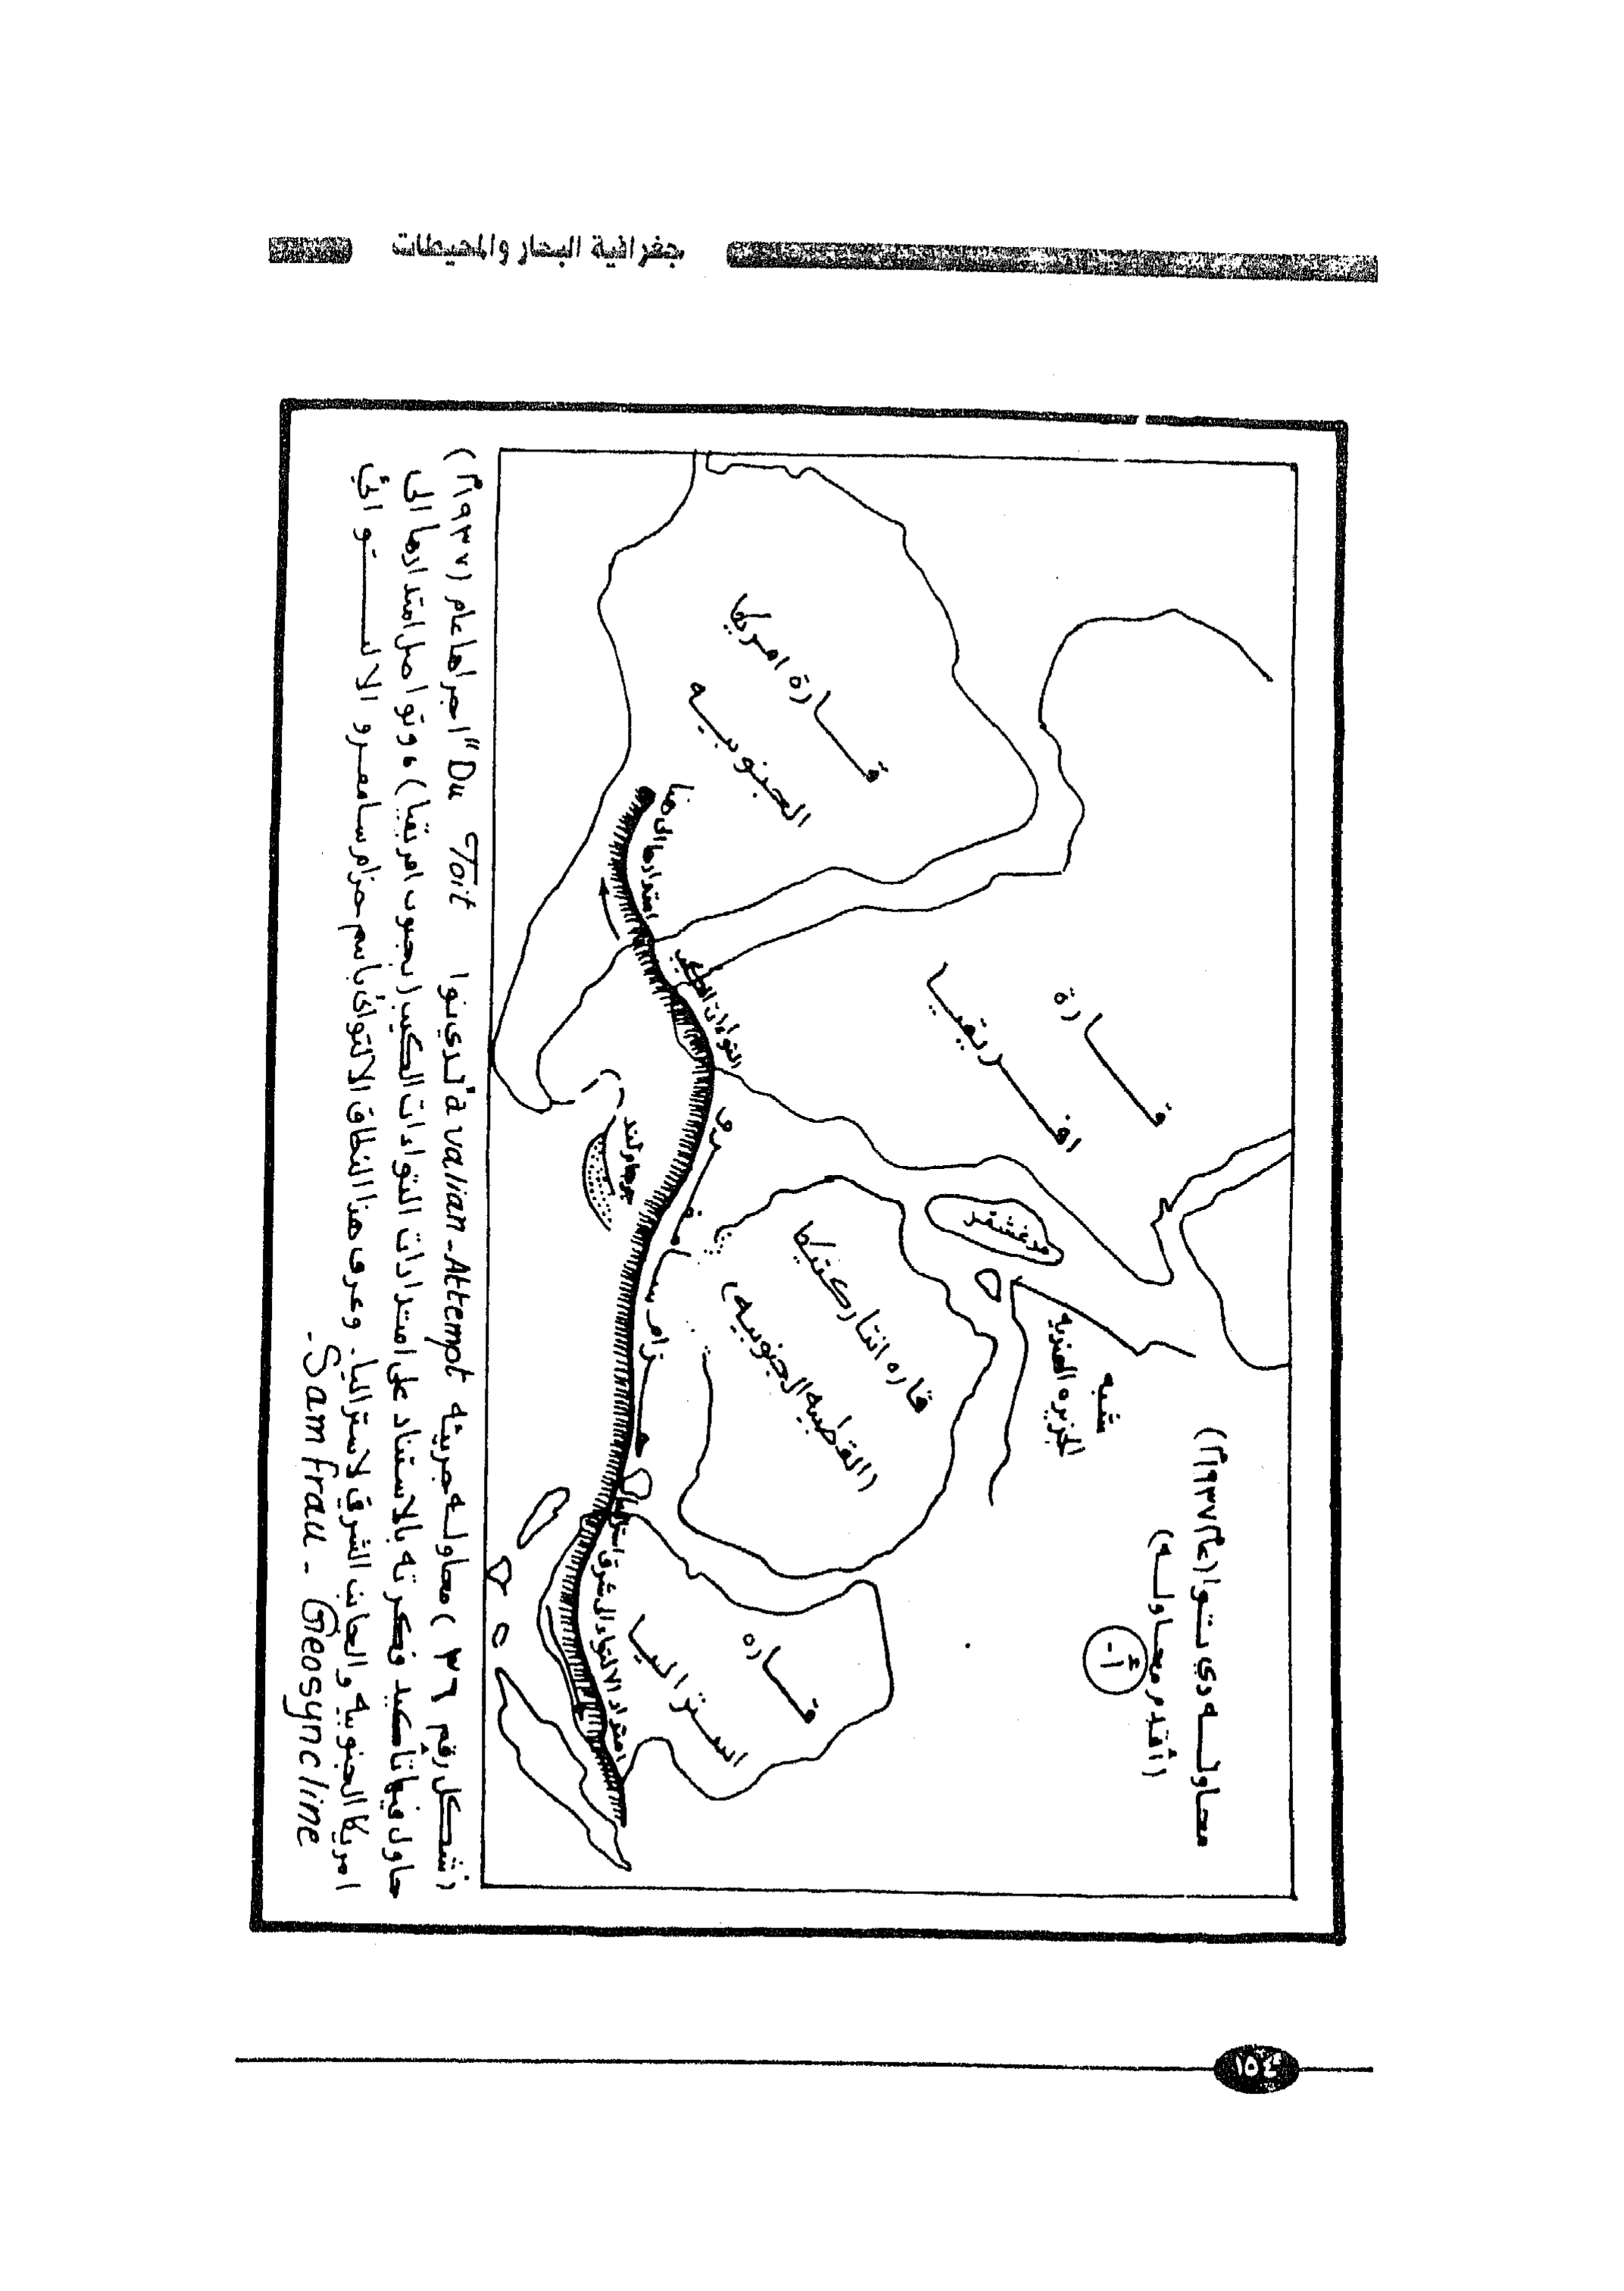 جغرافية البحار والمحيطات
محاولة دي تـوا (عام ١٩٣٧م)
(أقدم محاولـه)
-أ-
قـارة امريكا
الجنوبيه
قـارة
افـريقيـا
مدغشقر
شبه
الجزيره الهنديه
قاره انتاركتيكا
(القطبيه الجنوبيه)
قـاره
استراليـا
امتدادها الى هنا
التواءات الكيب
حـزام سـامفـرو
امتداد الالتواء الى شرق استراليا
(شكل رقم ٣٦) محاولـه جريئه a valian-Attempt لـدي توا "Du Toit" اجراها عام (١٩٣٧م)
حاول فيها تأكيد فكرته بالاستناد على امتدادات التواءات الكيب (بجنوب افريقيا)، وتواصل امتدادها الى
امريكا الجنوبيه والجانب الشرقي لاستراليا. وعرف هذا النطاق الالتوائي باسم حزام سامفرو الالـتوائي
-Samfrau - Geosyncline
١٥٤